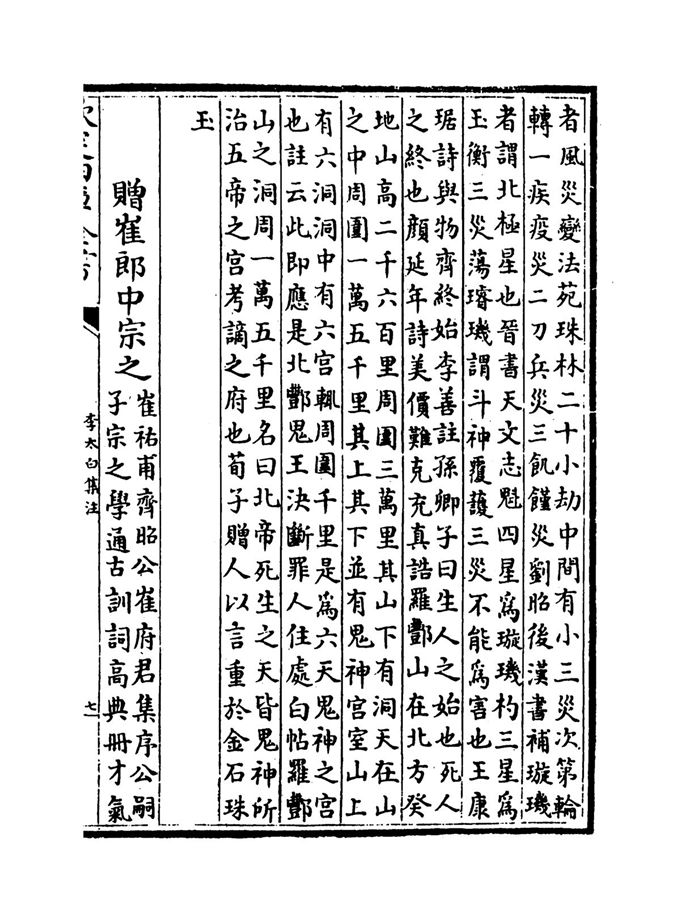 者風災變法苑珠林二十小劫中間有小三災次第輪
轉一疾疫災二刀兵災三飢饉災劉昭後漢書補璇璣
者謂北極星也晉書天文志魁四星為璇璣杓三星為
玉衡三災蕩璿璣謂斗神覆護三災不能為害也王康
琚詩與物齊終始李善註孫卿子曰生人之始也死人
之終也顔延年詩美價難克充真誥羅酆山在北方癸
地山高二千六百里周圍三萬里其山下有洞天在山
之中周圍一萬五千里其上其下並有鬼神宮室山上
有六洞洞中有六宮輒周圍千里是為六天鬼神之宮
也註云此即應是北酆鬼王決斷罪人住處白帖羅酆
山之洞周一萬五千里名曰北帝死生之天皆鬼神所
治五帝之宮考謫之府也荀子贈人以言重於金石珠
玉
贈崔郎中宗之
崔祐甫齊昭公崔府君集序公嗣
子宗之學通古訓詞高典冊才氣
李太白集注
七